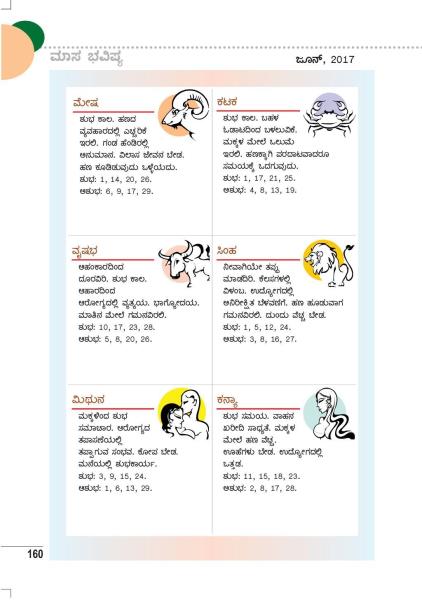 ಮಾಸ ಭವಿಷ್ಯ
ಜೂನ್, 2017
ಮೇಷ
ಶುಭ ಕಾಲ. ಹಣದ
ವ್ಯವಹಾರದಲ್ಲಿ ಎಚ್ಚರಿಕೆ
ಇರಲಿ. ಗಂಡ ಹೆಂಡಿರಲ್ಲಿ
ಅನುಮಾನ. ವಿಲಾಸ ಜೀವನ ಬೇಡ.
ಹಣ ಕೂಡಿಡುವುದು ಒಳ್ಳೆಯದು.
ಶುಭ: 1, 14, 20, 26.
ಅಶುಭ: 6, 9, 17, 29.
ಕಟಕ
ಶುಭ ಕಾಲ. ಬಹಳ
ಓಡಾಟದಿಂದ ಬಳಲುವಿಕೆ.
ಮಕ್ಕಳ ಮೇಲೆ ಒಲುಮೆ
ಇರಲಿ. ಹಣಕ್ಕಾಗಿ ಪರದಾಟವಾದರೂ
ಸಮಯಕ್ಕೆ ಒದಗುವುದು.
ಶುಭ: 1, 17, 21, 25.
ಅಶುಭ: 4, 8, 13, 19.
ವೃಷಭ
ಅಹಂಕಾರದಿಂದ
ದೂರವಿರಿ. ಶುಭ ಕಾಲ.
ಆಹಾರದಿಂದ
ಆರೋಗ್ಯದಲ್ಲಿ ವ್ಯತ್ಯಯ. ಭಾಗ್ಯೋದಯ.
ಮಾತಿನ ಮೇಲೆ ಗಮನವಿರಲಿ.
ಶುಭ: 10, 17, 23, 28.
ಅಶುಭ: 5, 8, 20, 26.
ಸಿಂಹ
ನೀವಾಗಿಯೇ ತಪ್ಪು
ಮಾಡದಿರಿ. ಕೆಲಸಗಳಲ್ಲಿ
ವಿಳಂಬ. ಉದ್ಯೋಗದಲ್ಲಿ
ಅನಿರೀಕ್ಷಿತ ಬೆಳವಣಿಗೆ. ಹಣ ಹೂಡುವಾಗ
ಗಮನವಿರಲಿ. ದುಂದು ವೆಚ್ಚ ಬೇಡ.
ಶುಭ: 1, 5, 12, 24.
ಅಶುಭ: 3, 8, 16, 27.
ಮಿಥುನ
ಮಕ್ಕಳಿಂದ ಶುಭ
ಸಮಾಚಾರ. ಆರೋಗ್ಯದ
ತಪಾಸಣೆಯಲ್ಲಿ
ತಪ್ಪಾಗುವ ಸಂಭವ. ಕೋಪ ಬೇಡ.
ಮನೆಯಲ್ಲಿ ಶುಭಕಾರ್ಯ.
ಶುಭ: 3, 9, 15, 24.
ಅಶುಭ: 1, 6, 13, 29.
ಕನ್ಯಾ
ಶುಭ ಸಮಯ. ವಾಹನ
ಖರೀದಿ ಸಾಧ್ಯತೆ. ಮಕ್ಕಳ
ಮೇಲೆ ಹಣ ವೆಚ್ಚ.
ಊಹೆಗಳು ಬೇಡ. ಉದ್ಯೋಗದಲ್ಲಿ
ಒತ್ತಡ.
ಶುಭ: 11, 15, 18, 23.
ಅಶುಭ: 2, 8, 17, 28.
160